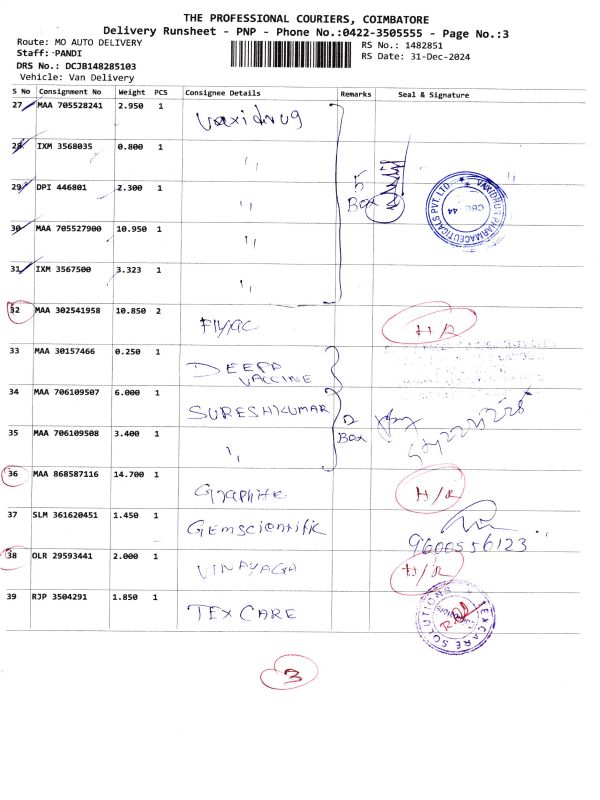 THE PROFESSIONAL COURIERS, COIMBATORE
Delivery Runsheet - PNP - Phone No.:0422-3505555 - Page No.:3
Route: MO AUTO DELIVERY
RS No.: 1482851
Staff: PANDI
RS Date: 31-Dec-2024
DRS No.: DCJB148285103
Vehicle: Van Delivery
S No Consignment No Weight PCS Consignee Details Remarks Seal & Signature
27 MAA 705528241 2.950 1 Vaxidrug
28 IXM 3568035 0.800 1 "
29 DPI 446801 2.300 1 " 5 Box
30 MAA 705527900 10.950 1 "
31 IXM 3567500 3.323 1 "
32 MAA 302541958 10.850 2 Flyjac H/R
33 MAA 30157466 0.250 1 DEEPA VACCINE
34 MAA 706109507 6.000 1 SURESHKUMAR 2 Box
35 MAA 706109508 3.400 1 "
36 MAA 868587116 14.700 1 Graphite H/R
37 SLM 361620451 1.450 1 GEMSCIENTIFIC 9600556123
38 OLR 29593441 2.000 1 VINAYAGA H/R
39 RJP 3504291 1.850 1 TEX CARE
3